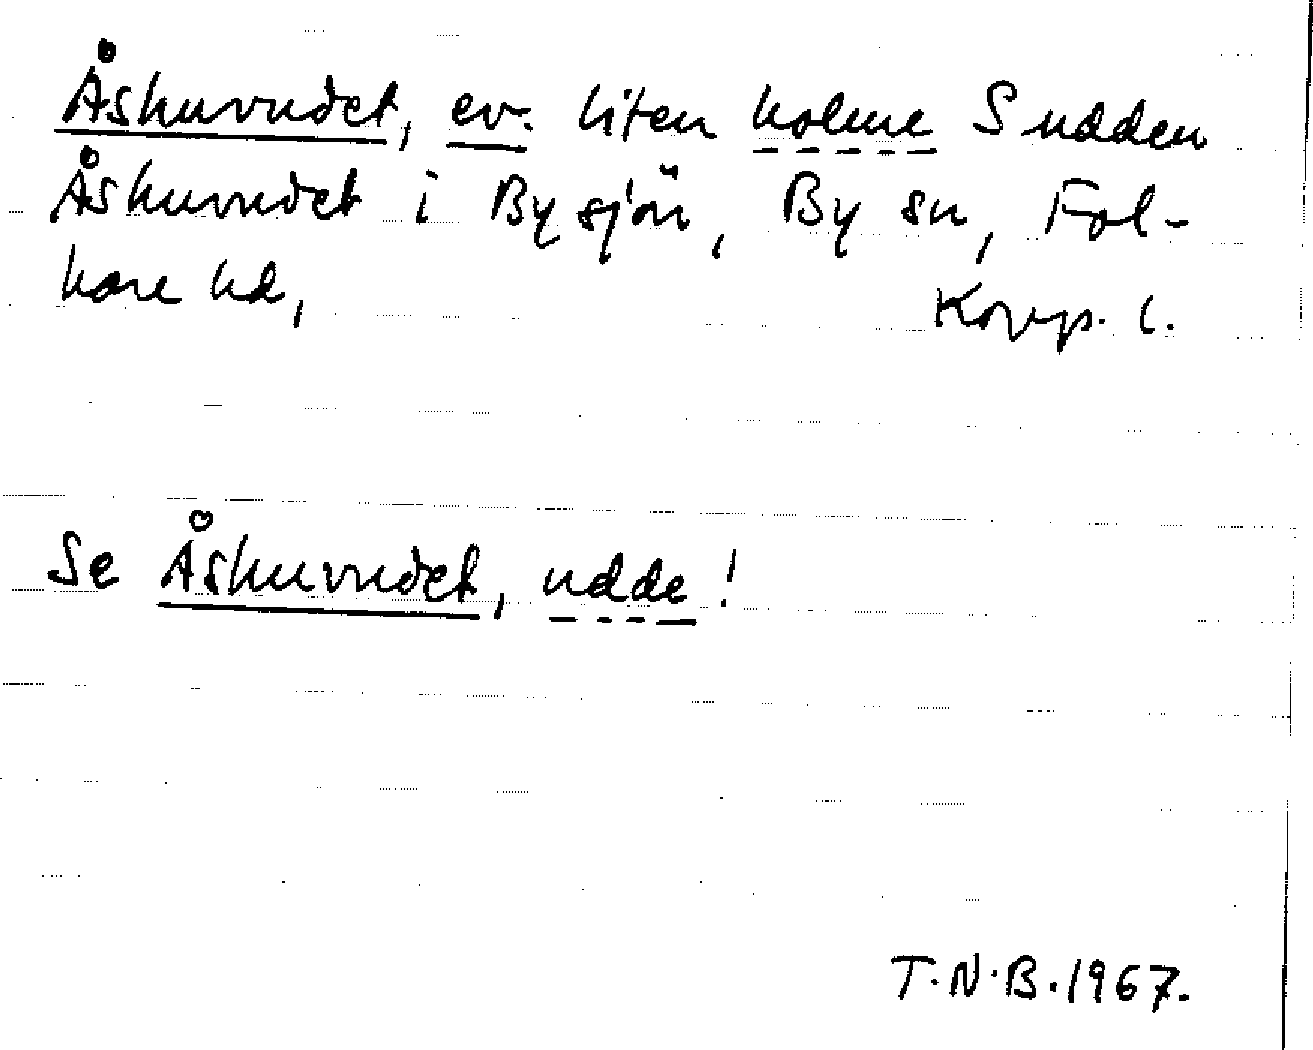 Åshuvudet, ev. liten holme S udden
Åshuvudet i Bysjön, By sn, Fol-
kare hd,
Se Åshuvudet, udde!
T.N.B. 1967.